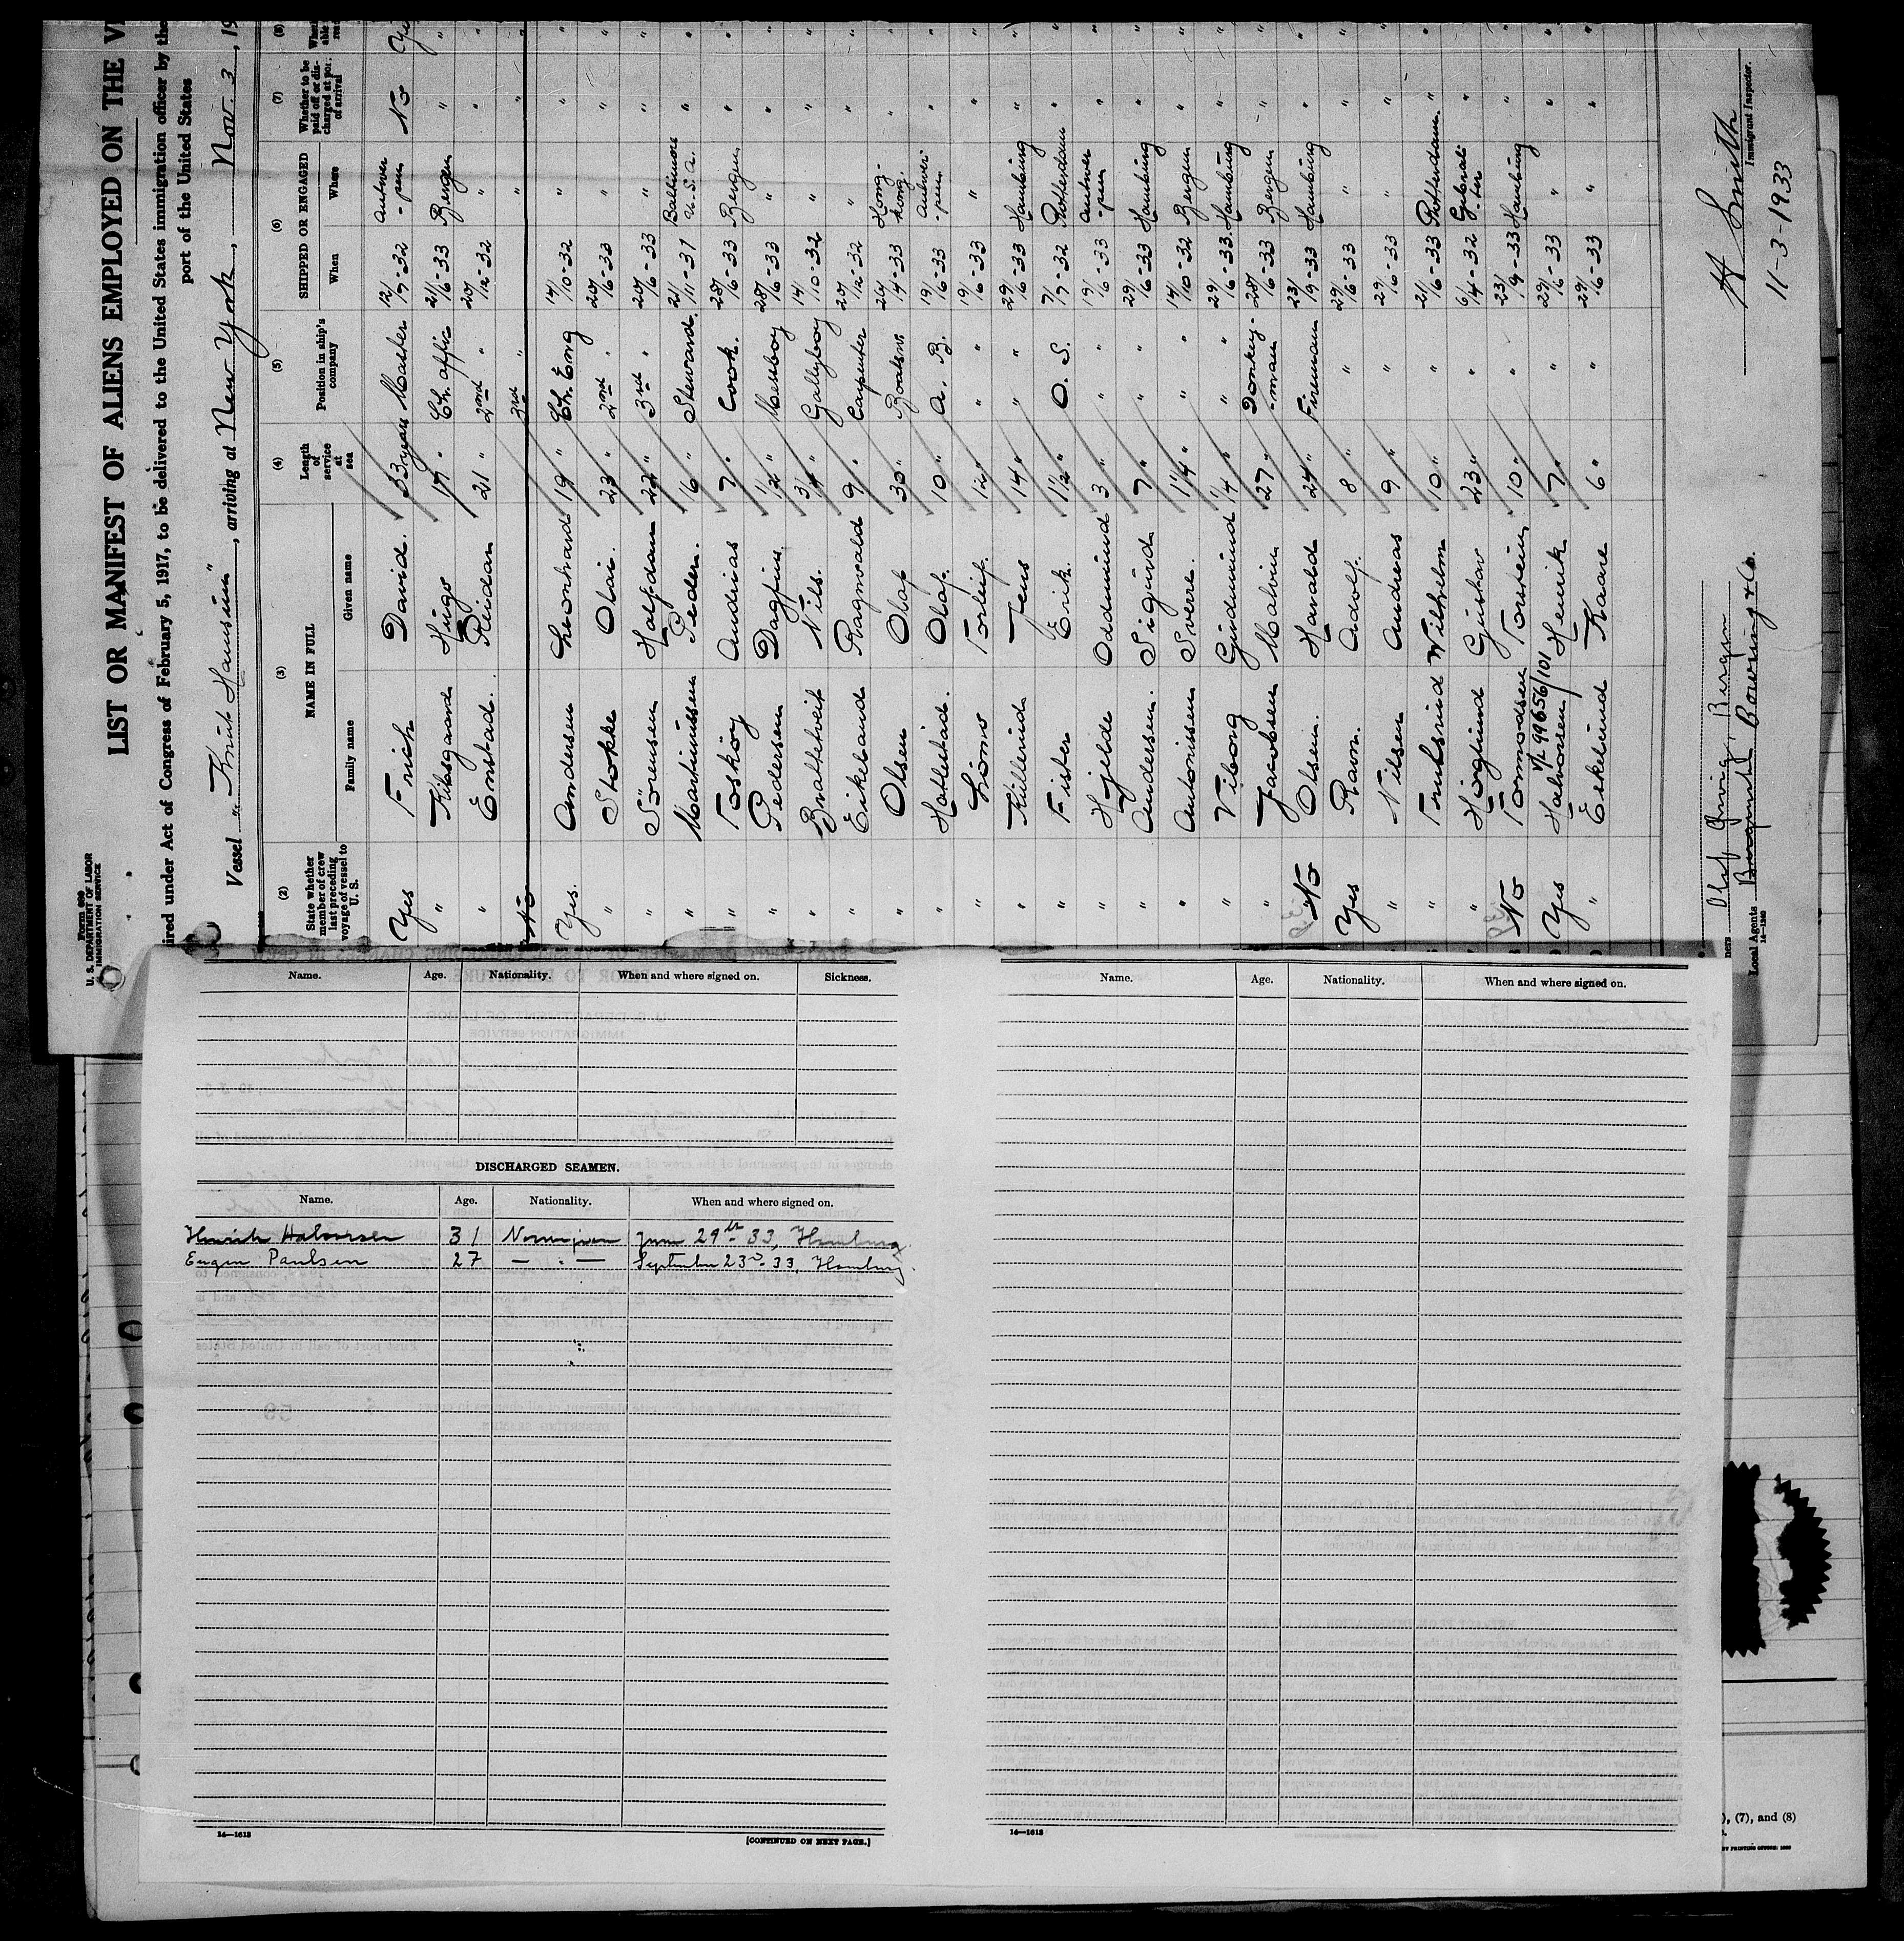 Form 689
U. S. DEPARTMENT OF LABOR
IMMIGRATION SERVICE
LIST OR MANIFEST OF ALIENS EMPLOYED ON THE
ired under Act of Congress of February 5, 1917, to be delivered to the United States immigration officer by the
port of the United States
Vessel "Knut Hamsun", arriving at New York, Nov. 3, 19
(2) (3) (4) (5) (6) (7) (8)
State whether member of crew last preceding voyage of vessel to U. S. NAME IN FULL Length of service at sea Position in ship's company SHIPPED OR ENGAGED Whether to be paid off or discharged at port of arrival
Family name Given name When Where
Yes Frich David. 33 years Master 12/7-32 Antwer-pen No
" Kiksgaard Hugo 17 " Ch. offic 21/6-33 Bergen "
" Enstad. Reidar 21 " 2nd " 20/12-32 " "
No 3rd " " "
Yes. Andersen Leonhard 19 " Ch. Eng 14/10-32 " "
" Stokke Olai. 23 " 2nd " 20/6-33 " "
" Sörensen Halfdan 22 " 3rd " 20/6-33 " "
" Martinussen Peder. 16 " Steward. 21/11-31 Baltimore U.S.A. "
" Fosköy Andreas 7 " Cook. 28/6-33 Bergen "
" Pedersen Dagfin 1/2 " Messboy 28/6-33 " "
" Brattetveit Nils. 3/4 " Galleyboy 14/10-32 " "
" Eikeland Ragnvald 9 " Carpenter 20/12-32 " "
" Olsen Olaf 30 " Boatsw 26/4-33 Hong-kong. "
" Hatlestad. Olaf. 10 " A. B. 19/6-33 Antwer-pen "
" Lions Torleif. 12 " " 19/6-33 " "
" Kullerud Jens 14 " " 29/6-33 Hamburg "
" Fister Erik. 1 1/2 " O. S. 7/7-32 Rotterdam "
" Hjelde Oddmund 3 " " 19/6-33 Antwer-pen "
" Andersen. Sigurd 7 " " 29/6-33 Hamburg "
" Antonissen Sverre. 1 1/4 " " 14/10-32 Bergen "
" Viborg Gudmund 1/4 " " 29/6-33. Hamburg "
" Jacobsen Malvin 27 " Donkey-man 28/6-33 Bergen "
No Olsen. Harald 24 " Fireman 23/9-33 Hamburg "
Yes Ravn. Adolf. 8 " " 29/6-33 " "
" Nilsen Andreas 9 " " 29/6-33 " "
" Wilhelm 10 " " 21/6-33 Rotterdam. "
" Höglund Gustav 23 " " 6/4-32 Gibralt-ter "
No Tormodsen Torstein. 10 " " 23/9-33 Hamburg "
V/L 99656/101
Yes Halvorsen Henrik 7 " " 29/6-33 " "
" Eckelund Kaare 6 " " 29/6-33 " "
Olaf Bergen
Local Agents Bowring & Co.
14—1240
H Smith
Immigrant Inspector.
11-3-1933
Name. Age. Nationality. When and where signed on. Sickness.
DISCHARGED SEAMEN.
Name. Age. Nationality. When and where signed on.
Henrik Halvorsen 31 Norwegian June 29th - 33, Hamburg.
Eugen Paulsen 27 — " — September 23rd - 33, Hamburg.
14—1613
[CONTINUED ON NEXT PAGE.]
Name. Age. Nationality. When and where signed on.
14—1613
), (7), and (8)